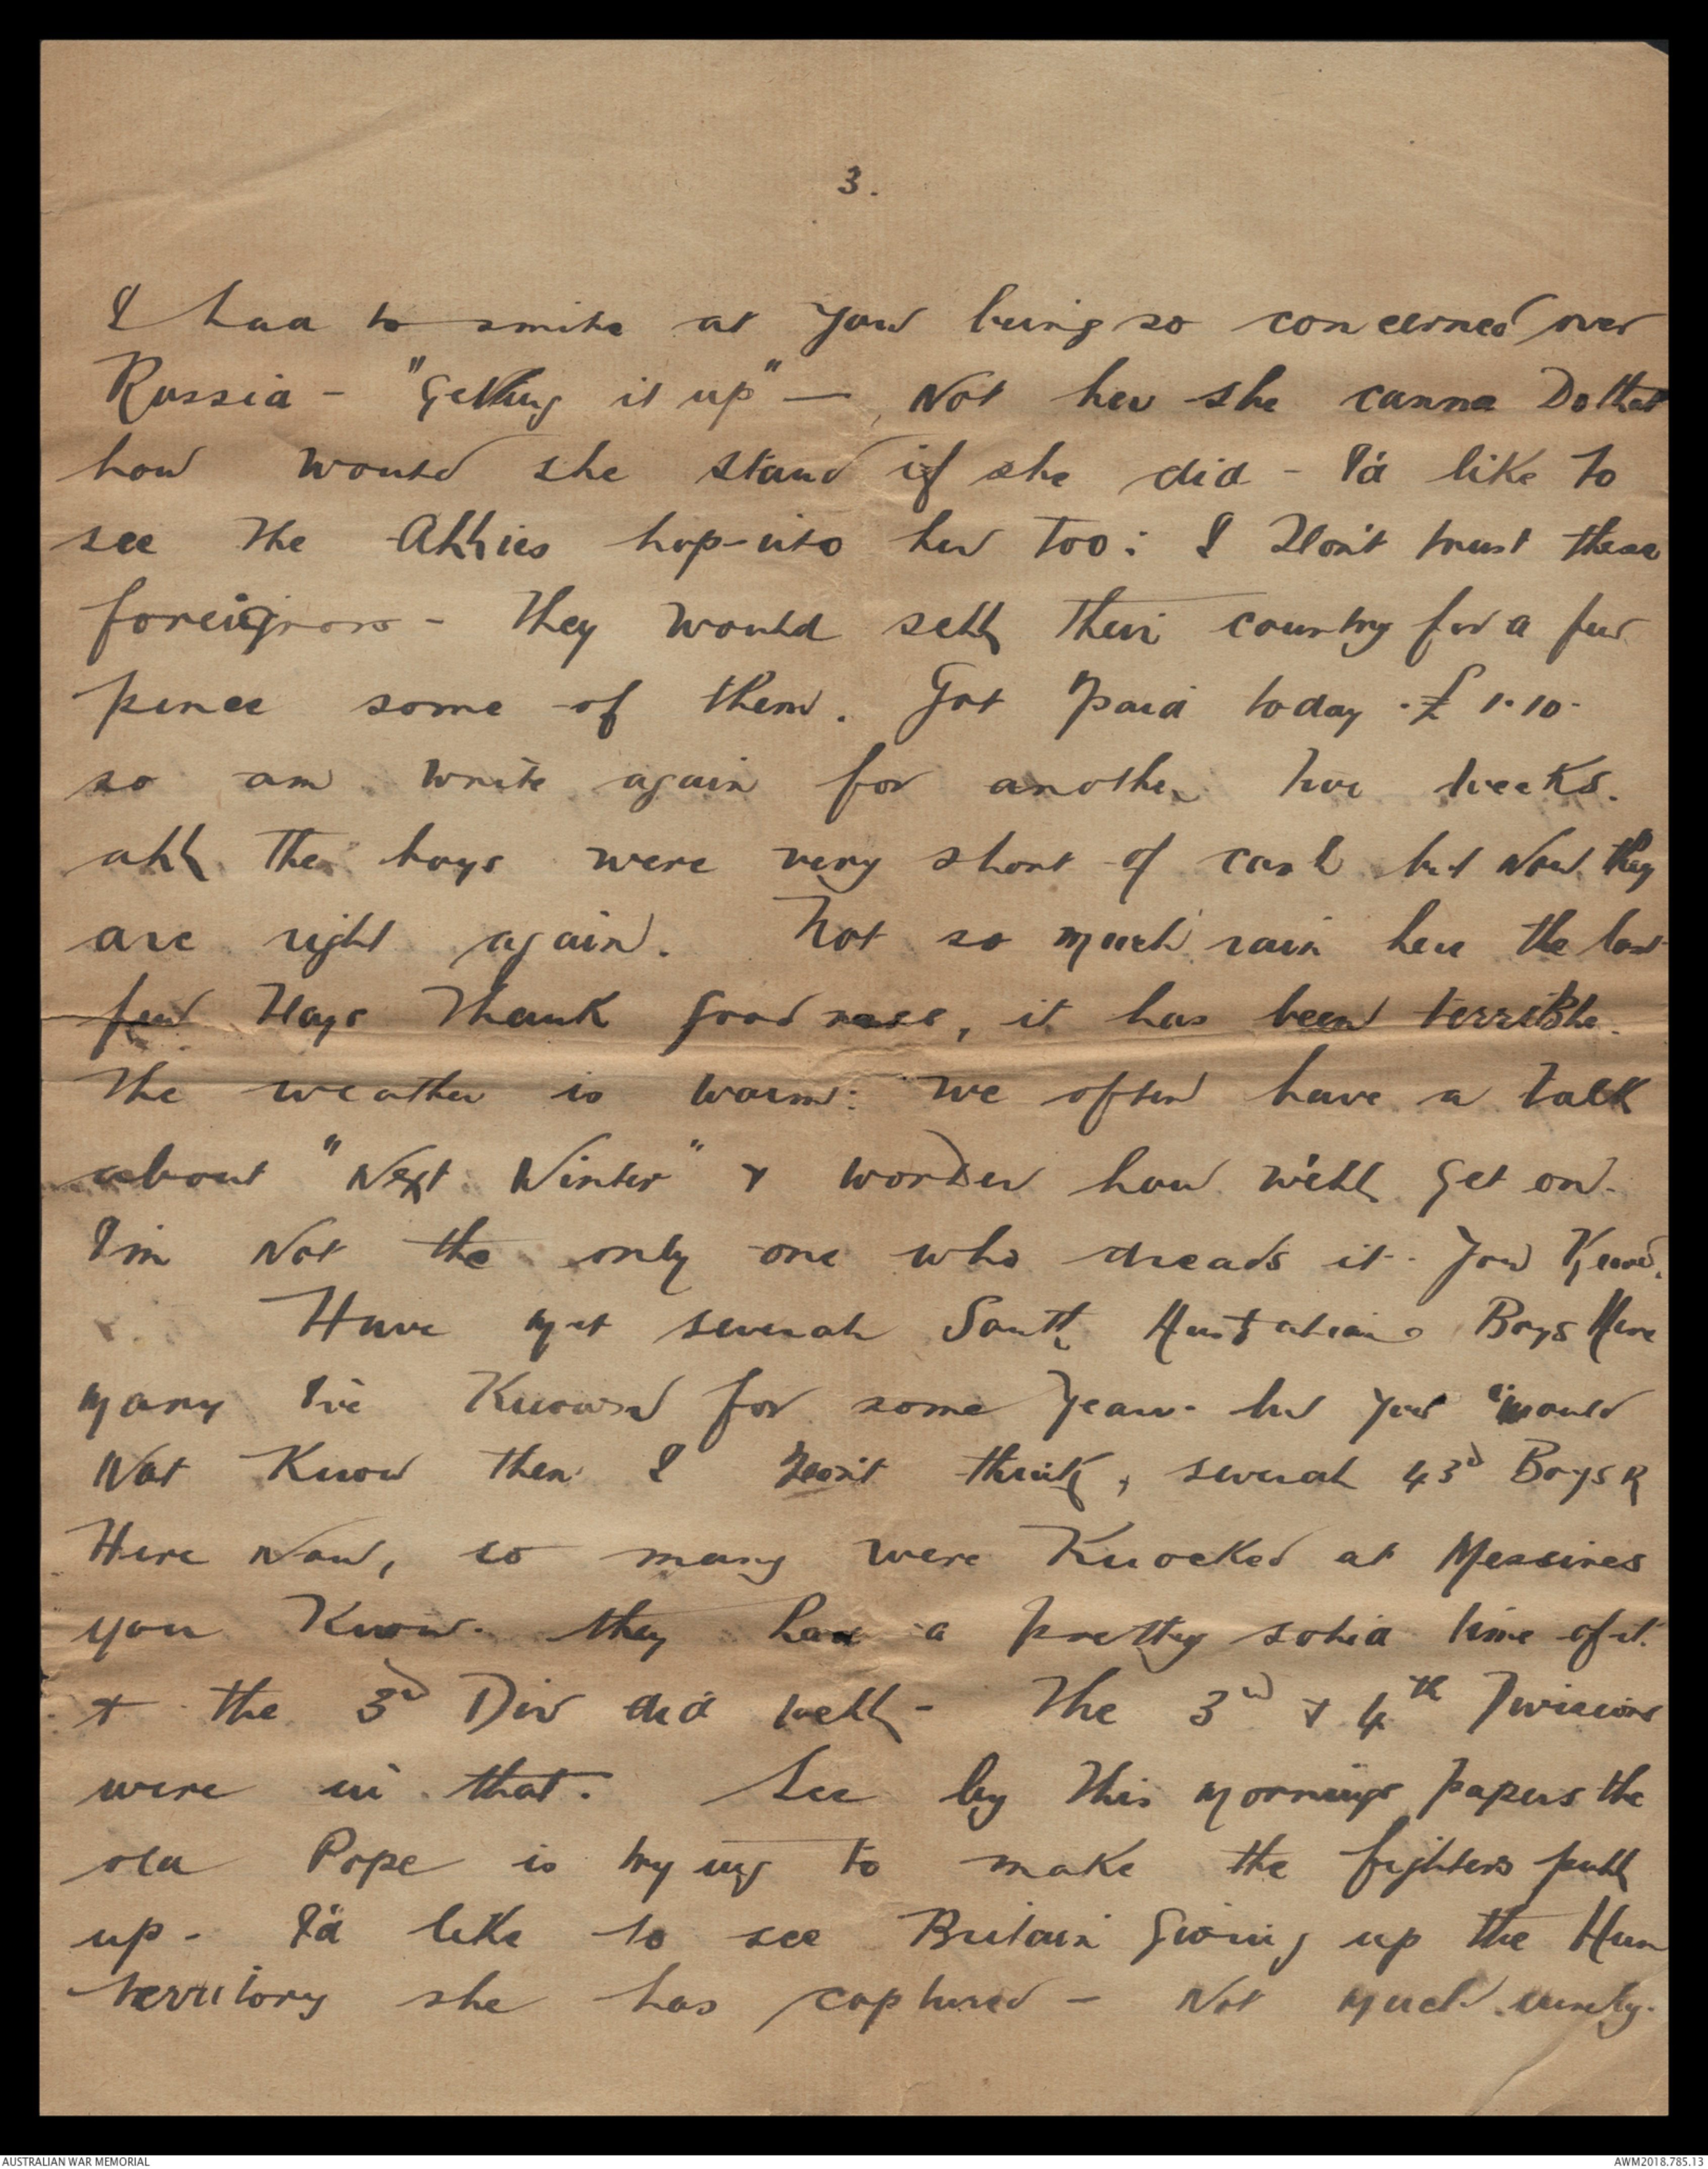 3.
I had to smile at you being so concerned over
Russia - "Getting it up" - Not her she canna Do that
how would she stand if she did - I'd like to
see the Allies hop-into her too: I Don't trust these
foreigners - They would sell their country for a few
pence some of them. Got paid today . £1.10.
so am write again for another two weeks.
all the boys were very short of cash but Now they
are right again. Not so much rain here the last
few Days Thank goodness, it has been terrible.
The weather is warm: We often have a talk
about "Next Winter" & wonder how we'll get on.
I'm Not the only one who dreads it. You Know.
Have met several South Australians Boys Here
many I've Known for some years. but you would
Not Know them I Don't think, several 43d Boys R
Here Now, so many were Knocked at Messines
you Know. they had a pretty solid time of it.
& the 3d Div did well - The 3rd & 4th Divisions
were in that. See by this mornings papers the
old Pope is trying to make the fighters pull
up - I'd like to see Britain Giving up the Hun
territory she has captured - Not much surely.
AUSTRALIAN WAR MEMORIAL
AWM2018.785.13